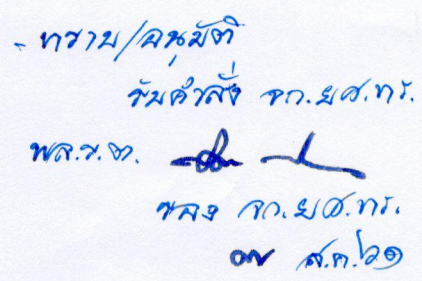 - ทราบ/อนุมัติ
รับคำสั่ง จก.ยศ.ทร.
พล.ร.ต.
รอง จก.ยศ.ทร.
๑๗ ส.ค.๖๑